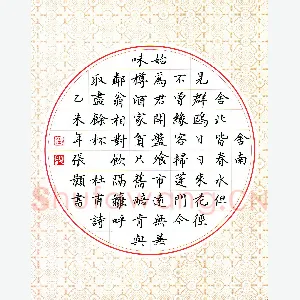 舍南
舍北皆春水但
見群鷗日日來花徑
不曾緣客掃蓬門今
始為君開盤飧市遠無兼
味樽酒家貧只舊醅肯與
鄰翁相對飲隔籬呼
取盡餘杯杜甫詩
乙未年張顥書